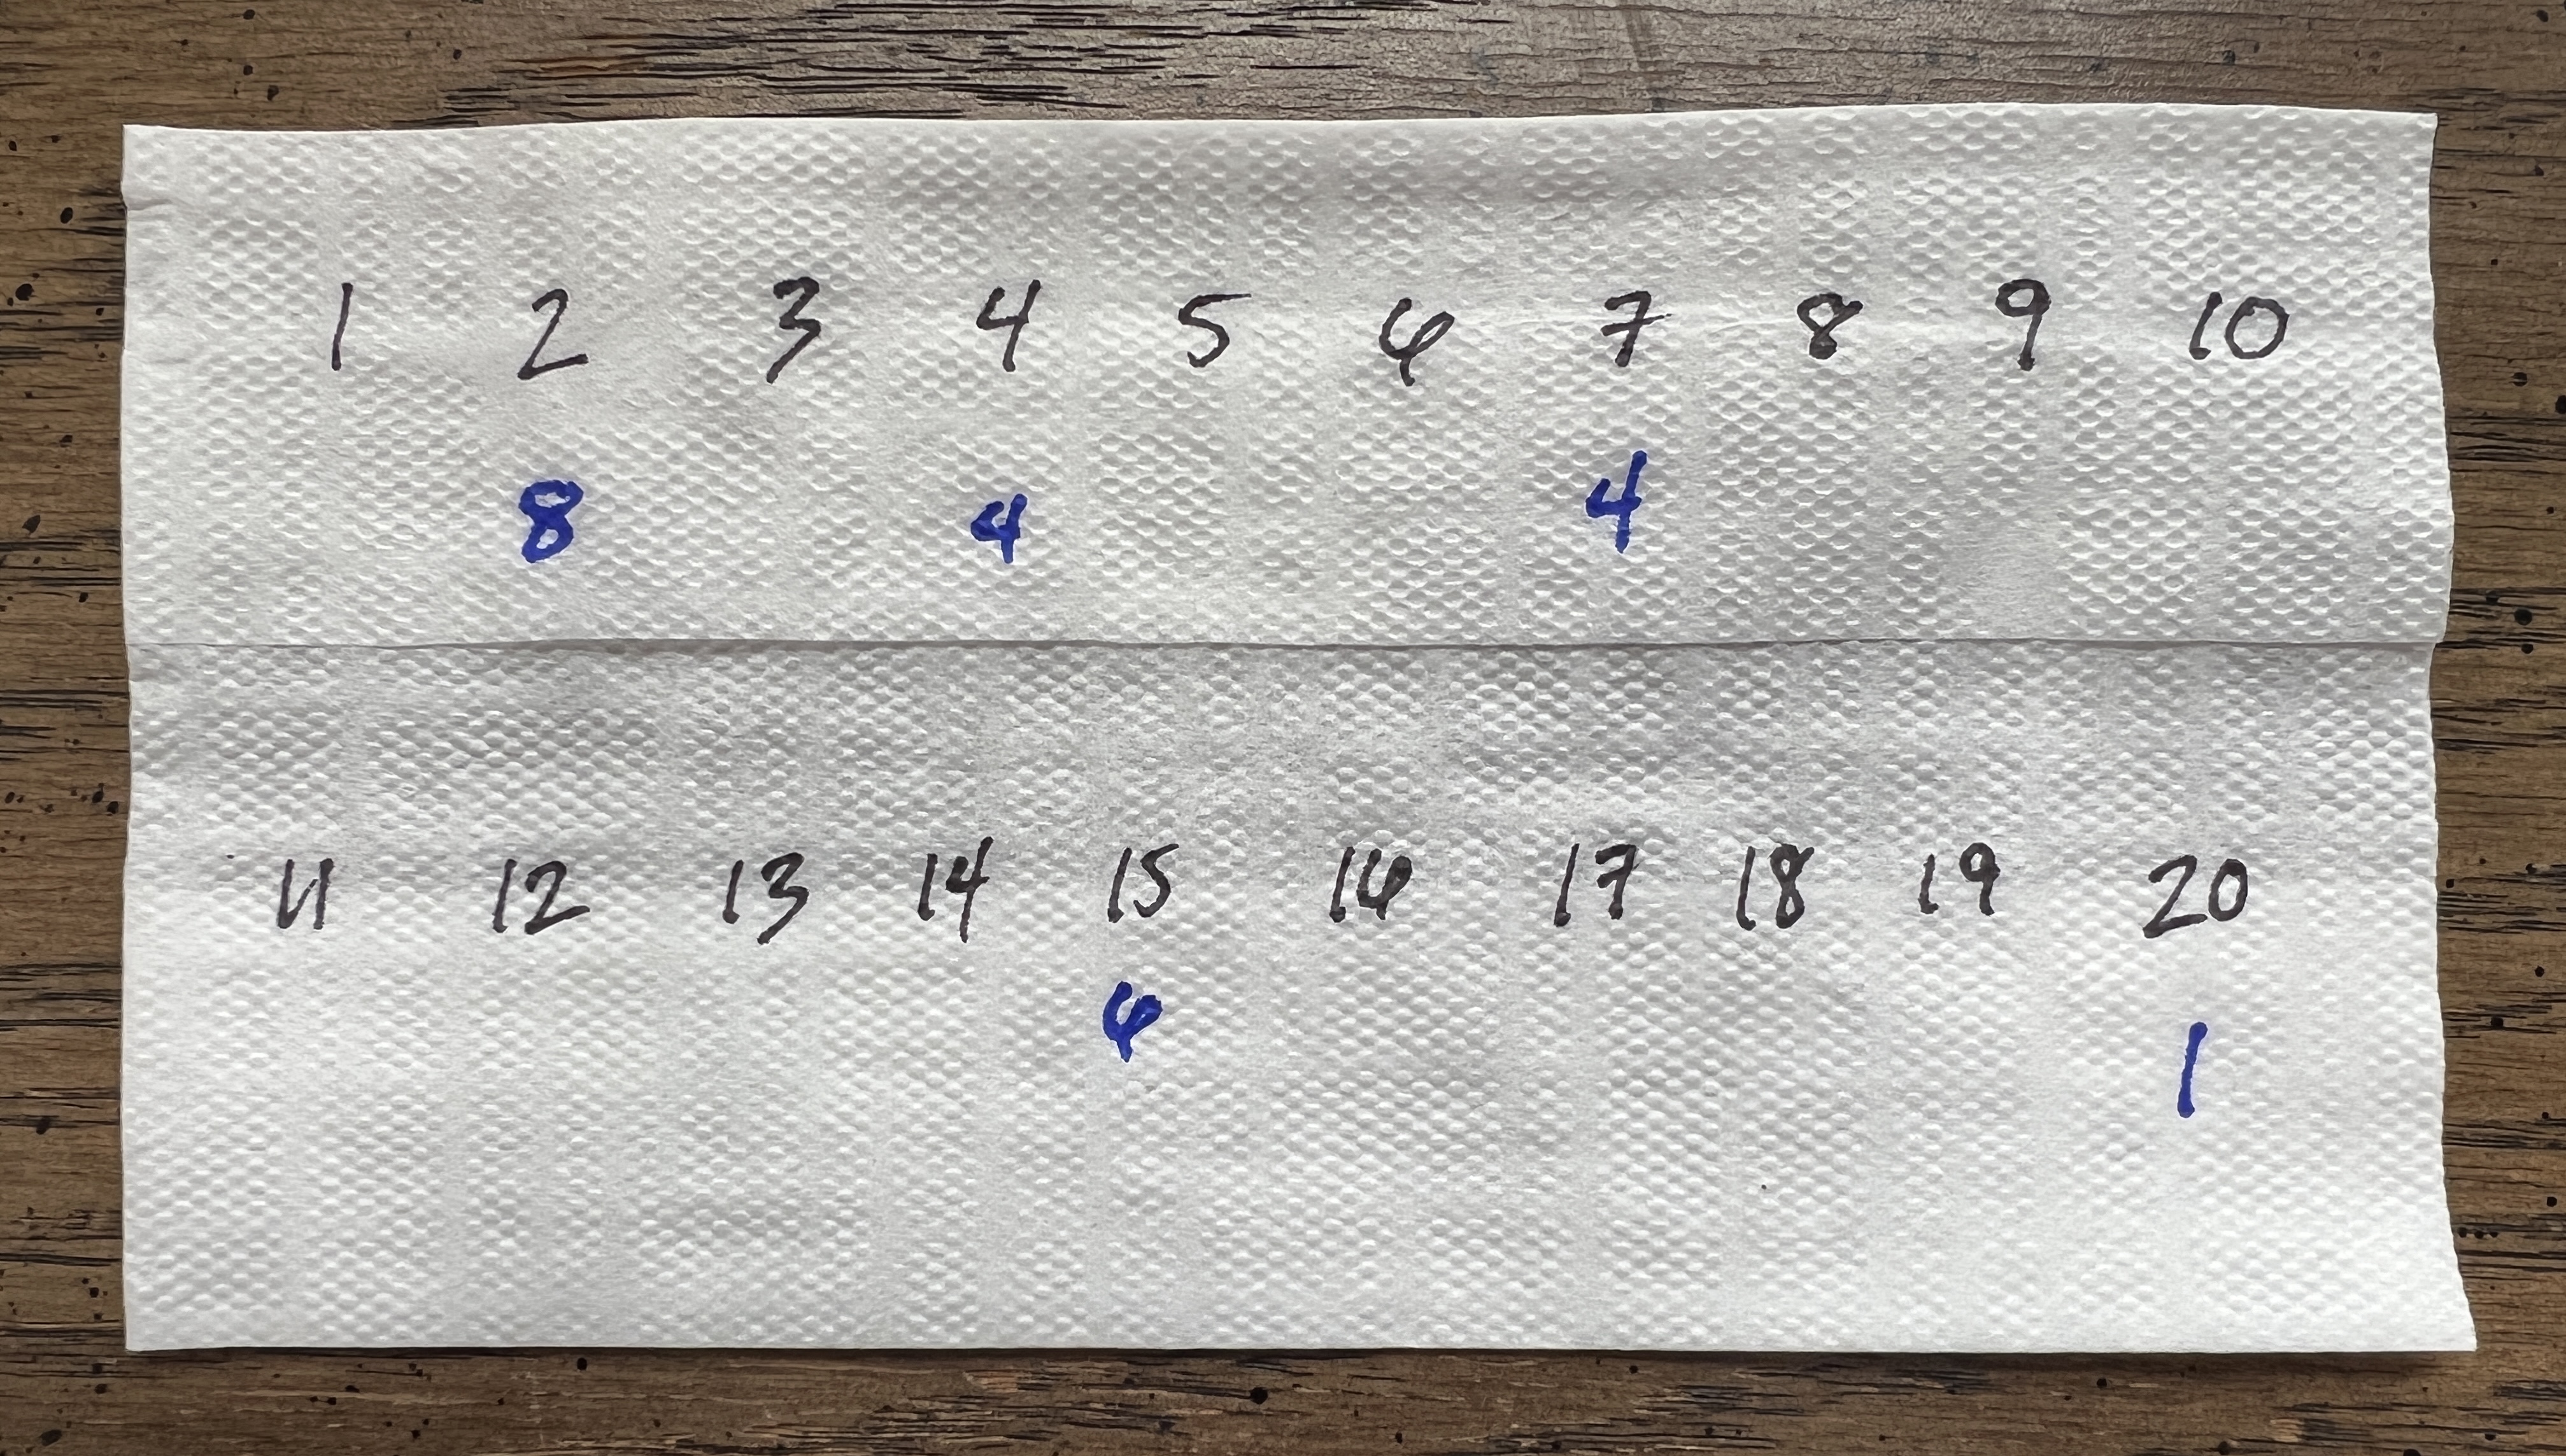 1 2 3 4 5 6 7 8 9 10
8 4 4
11 12 13 14 15 16 17 18 19 20
6 1